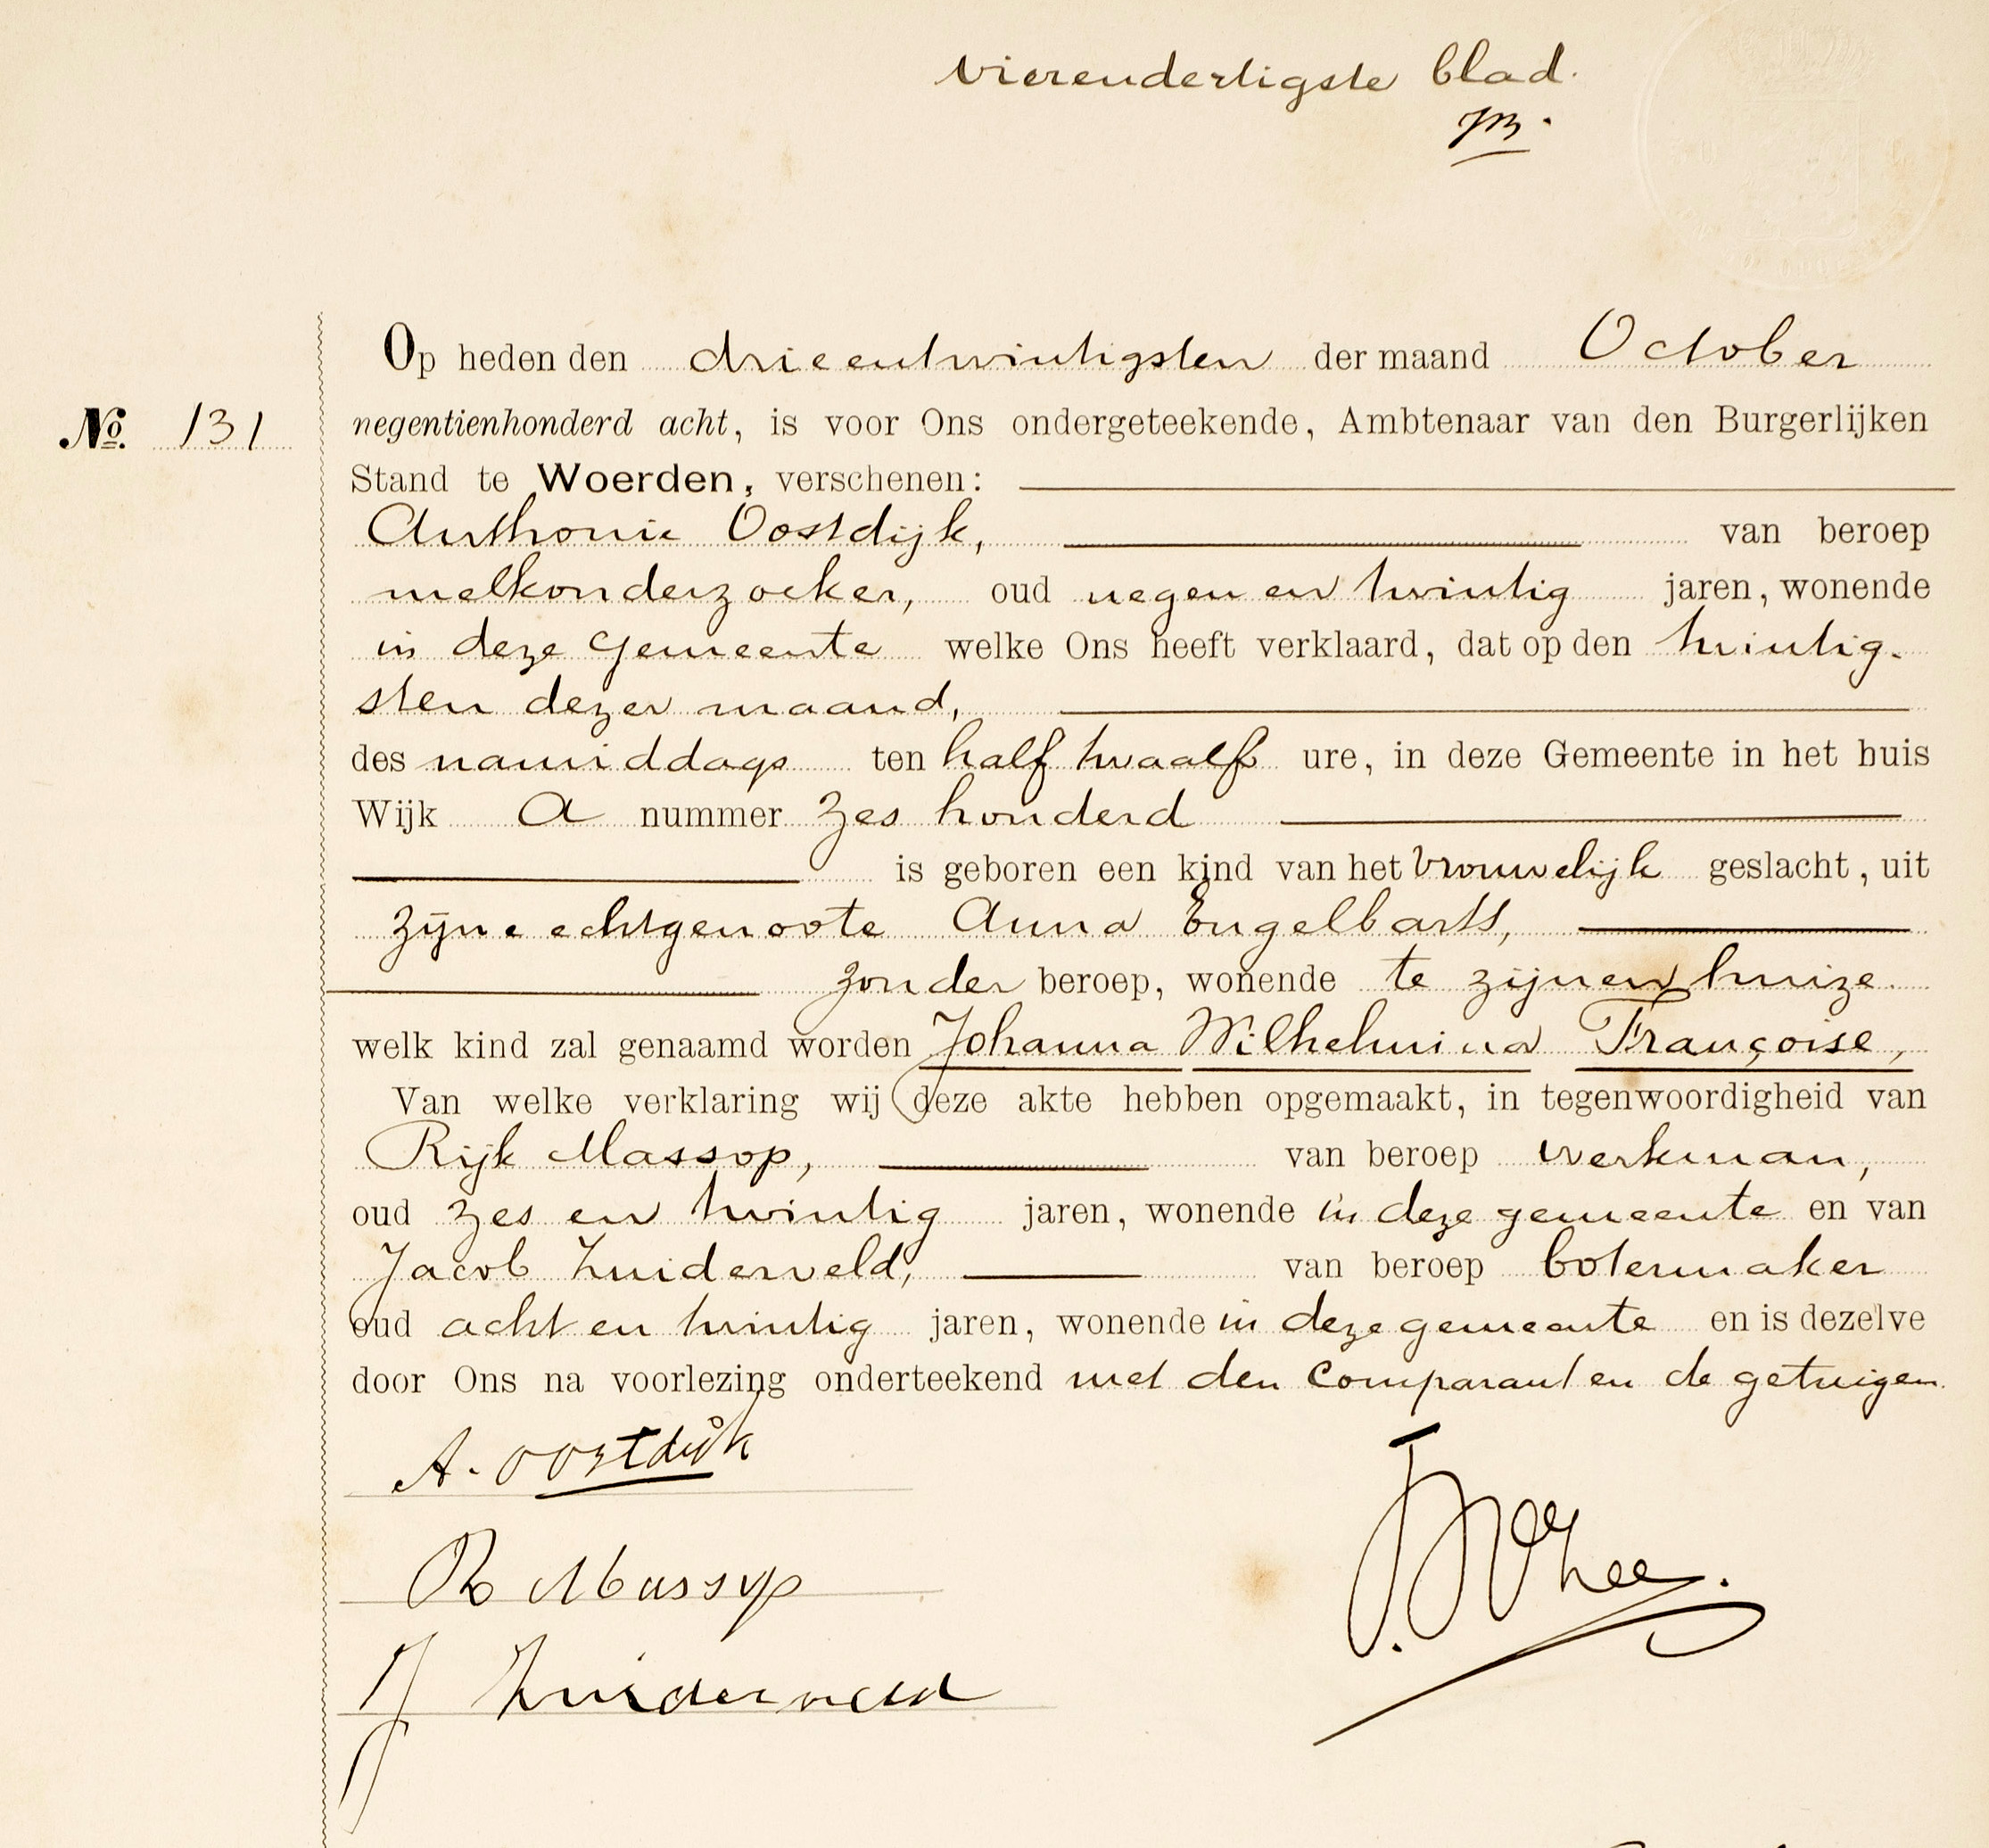 vierendertigste blad.
Op heden den drieentwintigsten der maand October
No. 131
negentienhonderd acht, is voor Ons ondergeteekende, Ambtenaar van den Burgerlijken
Stand te Woerden, verschenen:
Anthonie Oostdijk, van beroep
melkonderzoeker, oud negen en twintig jaren, wonende
in deze gemeente welke Ons heeft verklaard, dat op den twintig-
sten dezer maand,
des namiddags ten half twaalf ure, in deze Gemeente in het huis
Wijk A nummer zes honderd
is geboren een kind van het vrouwelijk geslacht, uit
zijne echtgenoote Anna Engelbarts,
zonder beroep, wonende te zijnen huize
welk kind zal genaamd worden Johanna Wilhelmina Françoise,
Van welke verklaring wij deze akte hebben opgemaakt, in tegenwoordigheid van
Rijk Massop, van beroep werkman,
oud zes en twintig jaren, wonende in deze gemeente en van
Jacob Zuiderveld, van beroep botermaker
oud acht en twintig jaren, wonende in deze gemeente en is dezelve
door Ons na voorlezing onderteekend met den comparant en de getuigen.
A. Oostdijk
R Massop
J Zuiderveld